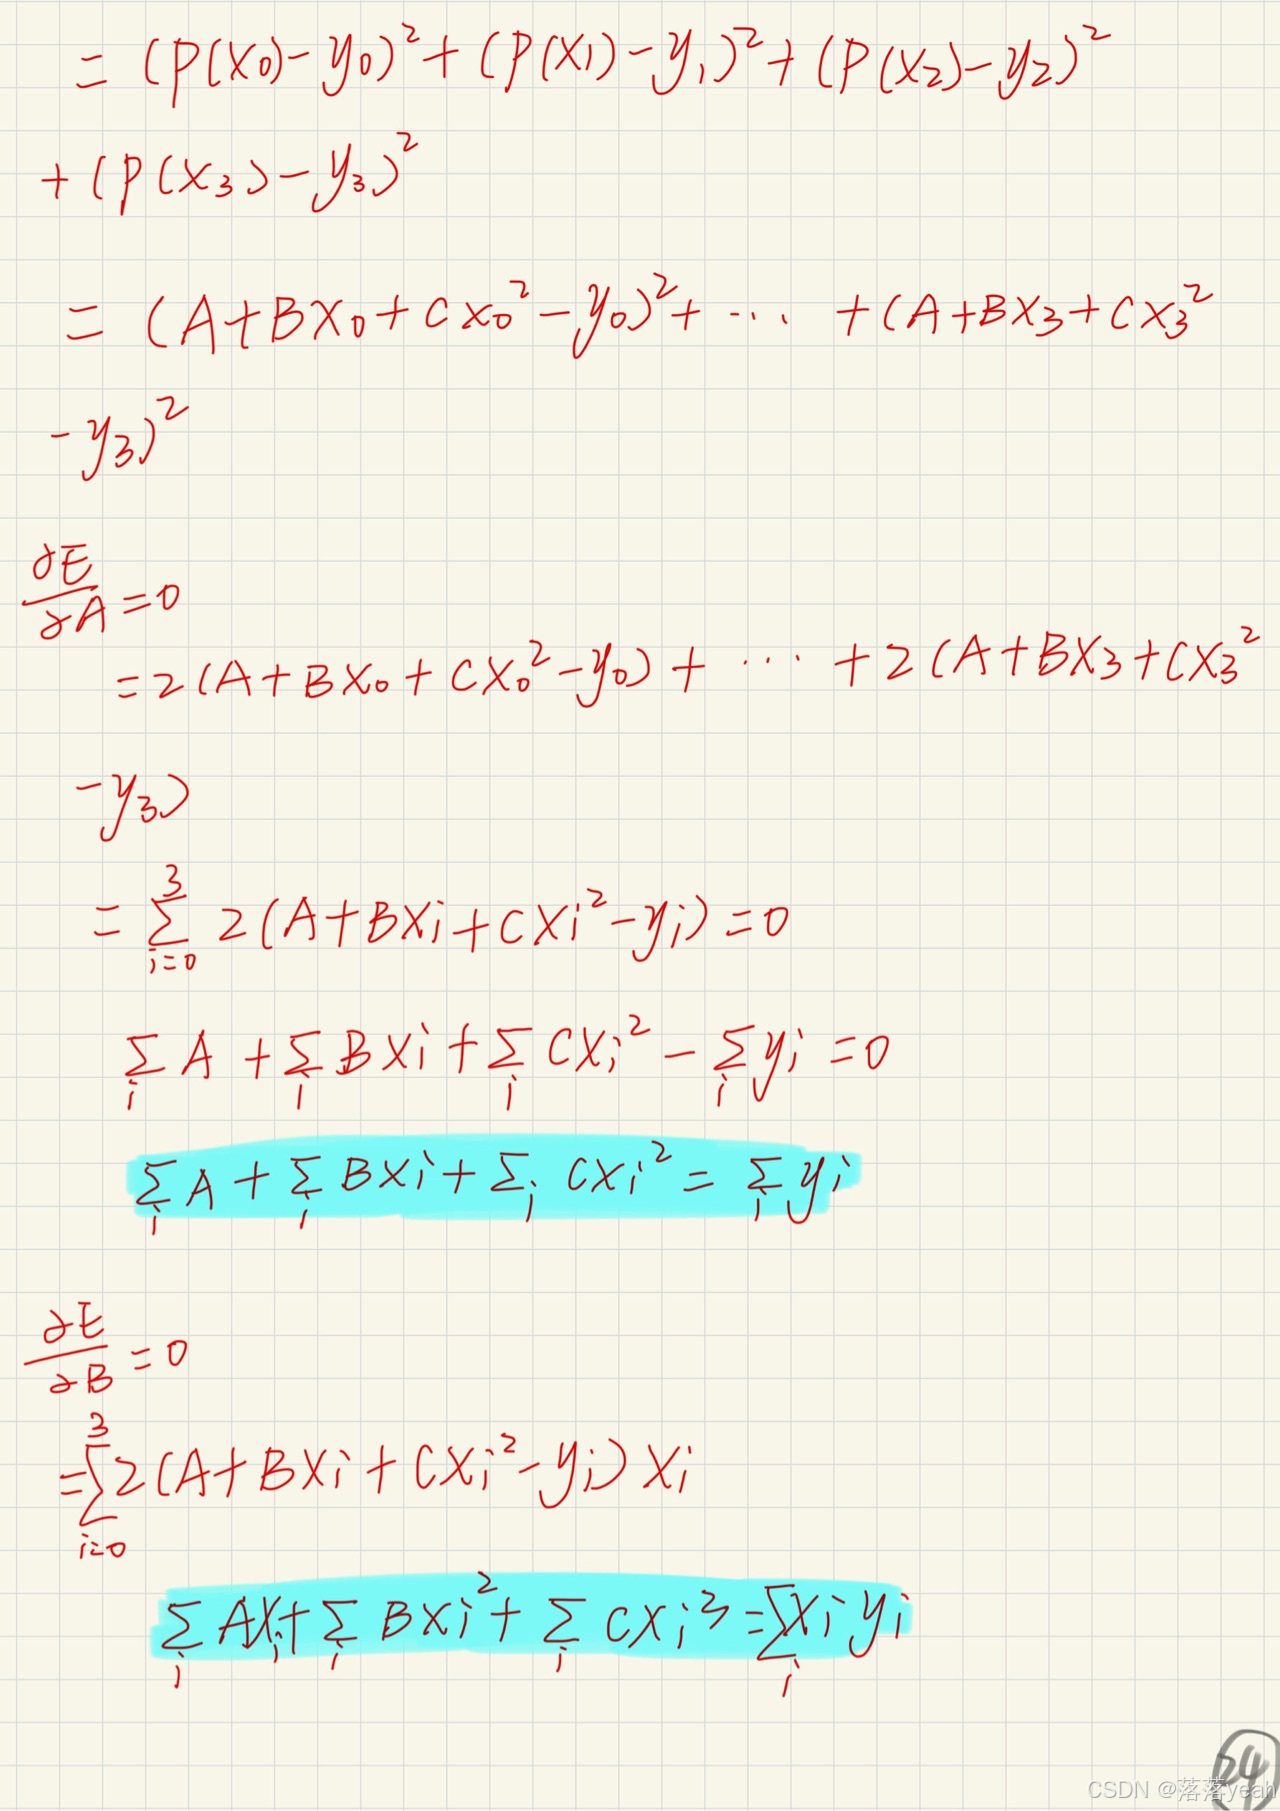 = (P(x₀)-y₀)² + (P(x₁)-y₁)² + (P(x₂)-y₂)²
+ (P(x₃)-y₃)²
= (A+Bx₀+Cx₀²-y₀)² + ... + (A+Bx₃+Cx₃²
-y₃)²
∂E/∂A = 0
= 2(A+Bx₀+Cx₀²-y₀) + ... + 2(A+Bx₃+Cx₃²
-y₃)
= ∑_{i=0}^{3} 2(A+Bxᵢ+Cxᵢ²-yᵢ) = 0
∑ᵢ A + ∑ᵢ Bxᵢ + ∑ᵢ Cxᵢ² - ∑ᵢ yᵢ = 0
∑ᵢ A + ∑ᵢ Bxᵢ + ∑ᵢ Cxᵢ² = ∑ᵢ yᵢ
∂E/∂B = 0
= ∑_{i=0}^{3} 2(A+Bxᵢ+Cxᵢ²-yᵢ)xᵢ
∑ᵢ Axᵢ + ∑ᵢ Bxᵢ² + ∑ᵢ Cxᵢ³ = ∑ᵢ xᵢyᵢ
24
CSDN @落落yeah